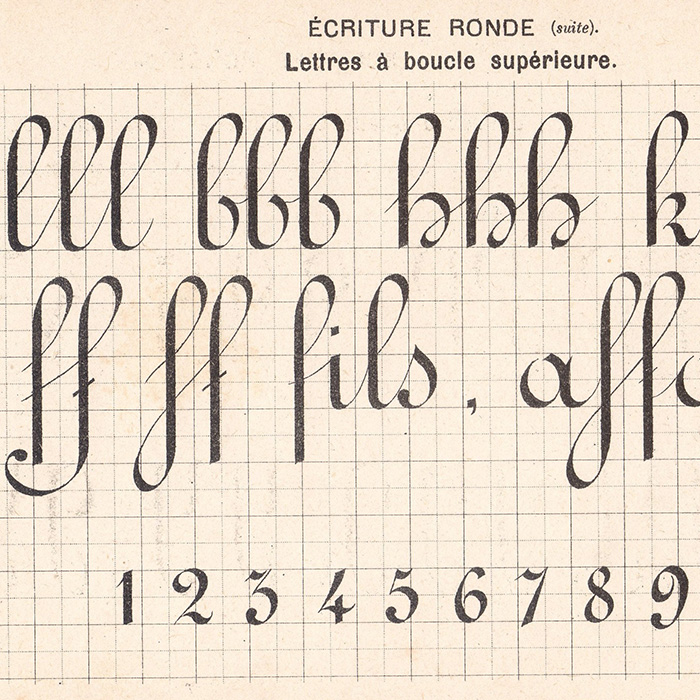 ÉCRITURE RONDE (suite).
Lettres à boucle supérieure.
lll bbb hhh k
ff ff fils, affo
1 2 3 4 5 6 7 8 9